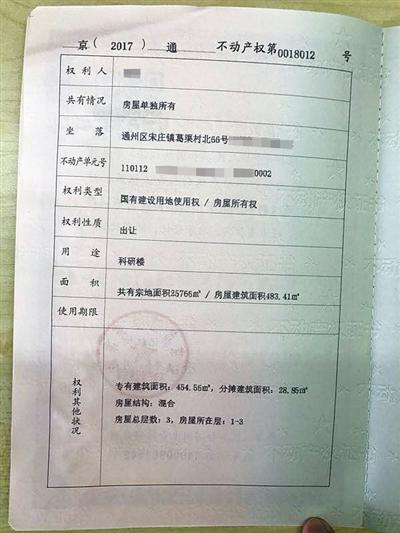 京(2017)通 不动产权第0018012 号
权利人
共有情况 房屋单独所有
坐落 通州区宋庄镇葛渠村北66号
不动产单元号 110112 0002
权利类型 国有建设用地使用权 / 房屋所有权
权利性质 出让
用途 科研楼
面积 共有宗地面积25766㎡ / 房屋建筑面积483.41㎡
使用期限
权利其他状况
专有建筑面积：454.56㎡, 分摊建筑面积：28.85㎡
房屋结构：混合
房屋总层数：3, 房屋所在层：1-3